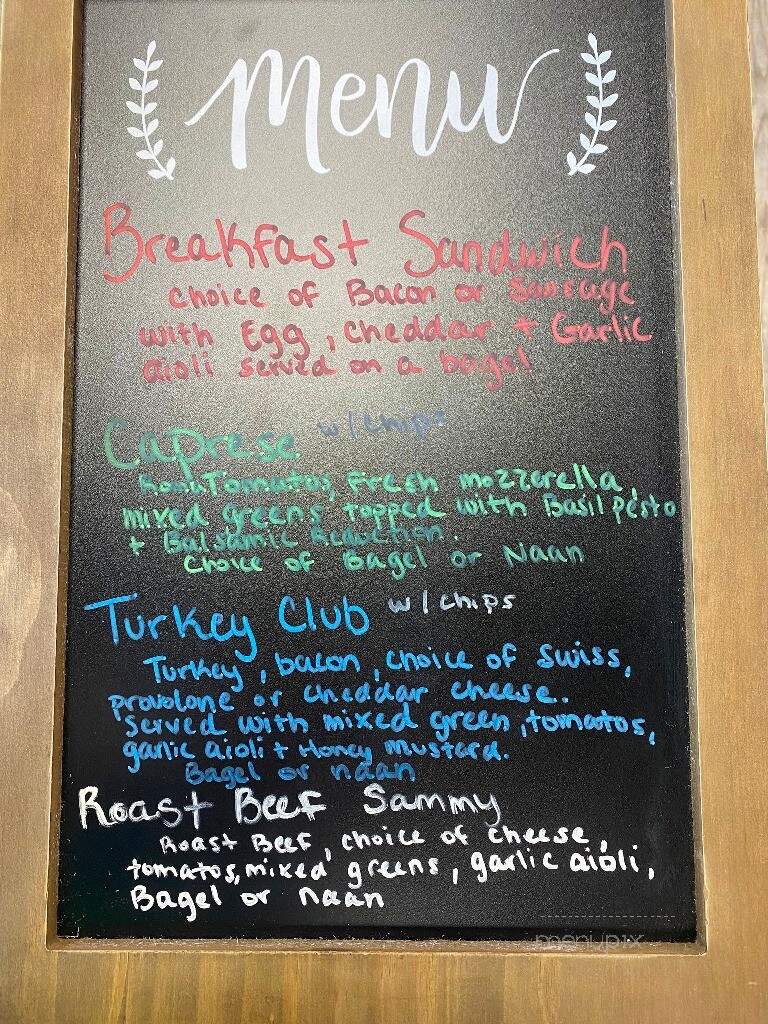 Menu
Breakfast Sandwich
choice of Bacon or Sausage
with Egg, cheddar + Garlic
aioli served on a bagel
Caprese w/chips
Roma Tomatos, Fresh mozzerella,
mixed greens topped with Basil pesto
+ Balsamic Reduction.
Choice of Bagel or Naan
Turkey Club w/chips
Turkey, bacon, choice of swiss,
provolone or cheddar cheese.
served with mixed green, tomatos,
garlic aioli + Honey mustard.
Bagel or naan
Roast Beef Sammy
Roast Beef, choice of cheese,
tomatos, mixed greens, garlic aioli,
Bagel or naan
menupix